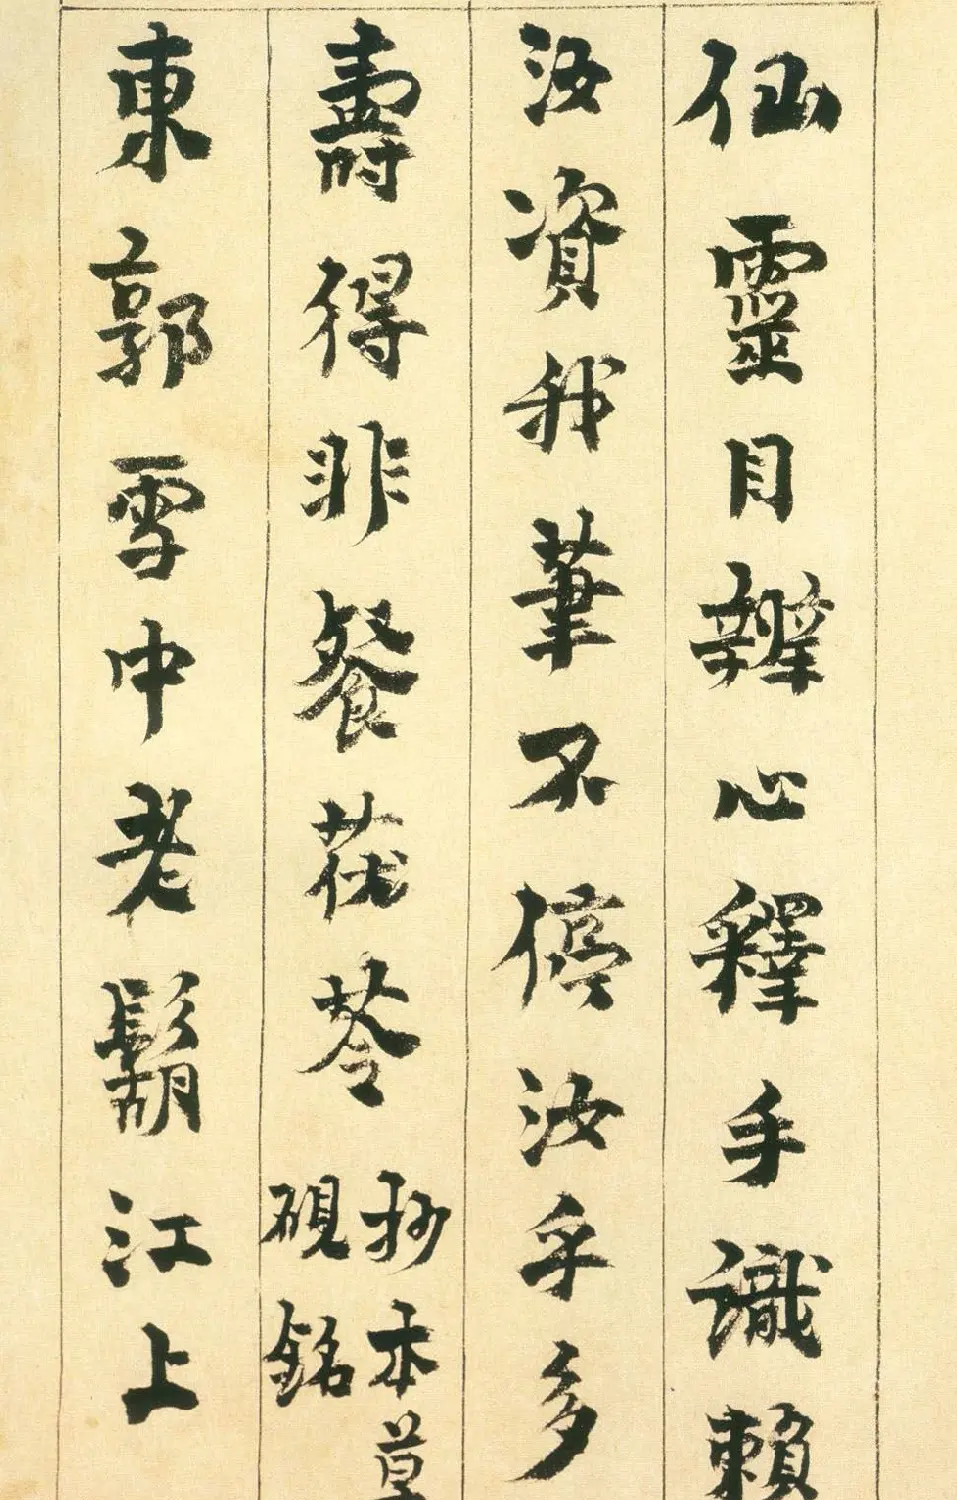 仙靈目辨心釋手識賴
汝資我筆不停汝乎多
壽得非餐茯苓
抄本草
硯銘
東郭雪中老鬍江上